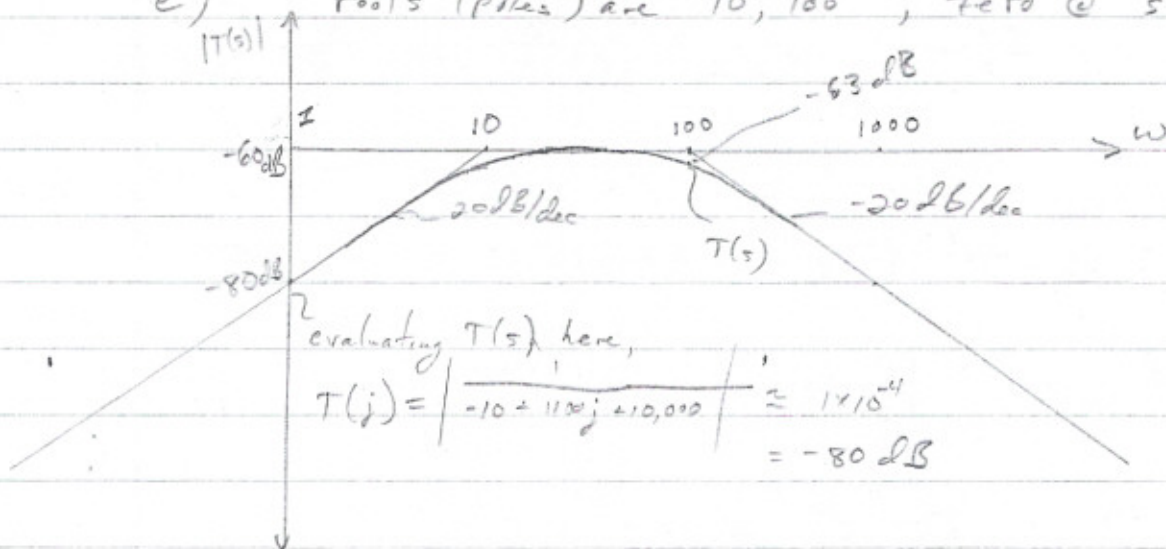 e) roots (poles) are 10, 100 , zero @ s
|T(s)|
-63 dB
1 10 100 1000 ω
-60dB
20dB/dec
-20dB/dec
T(s)
-80dB
evaluating T(s) here,
T(j) = | 1 / -10 + 1100j + 10,000 | ≈ 1×10^-4
= -80 dB